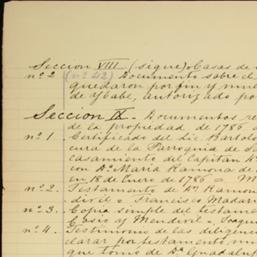 Seccion VIII (sigue) Casas de
nº 2 (nº 42) Documento sobre el
quedaron por fin y mue
de Ycabe, autorizado po
Seccion IX - Documentos re
de la propiedad de 1786 a
nº 1. Certificado del Lic. Bartolo
cura de la Parroquia de S
casamiento del Capitan Dn
con Dª Maria Ramona de
en 18 de Enero de 1786
nº 2. Testamento de Dn Ramon
divil a Francisco Madar
nº 3. Copia simple del testame
nº 4. Testimonio de las diligenc
clarar por testamento nu
que tomo de Dª Guadalup